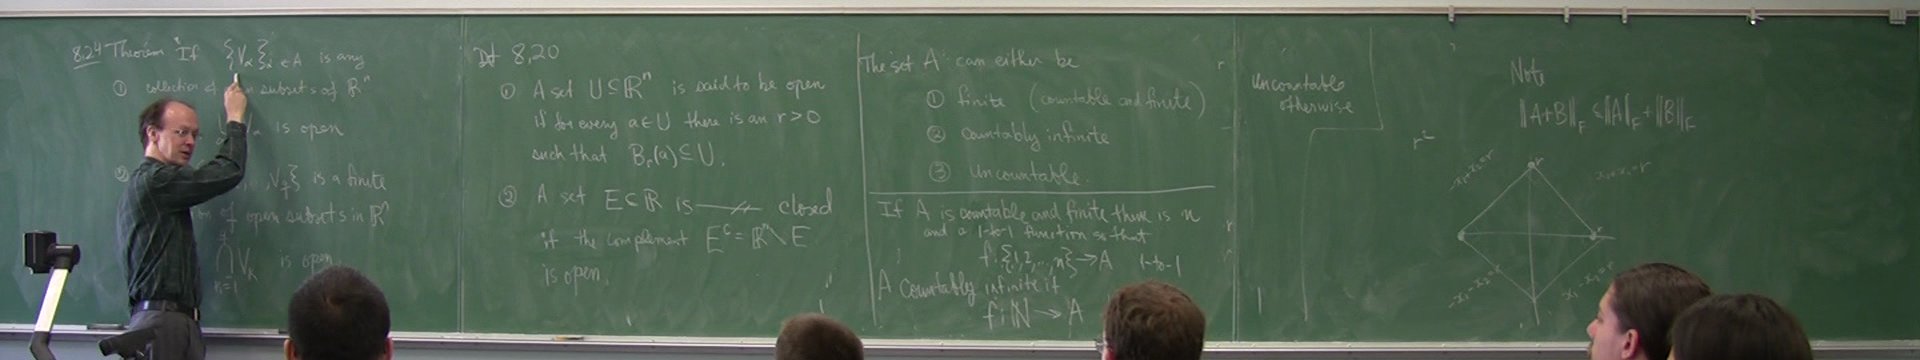 8.24 Theorem If {Vα}α∈A is any
① collection of open subsets of ℝⁿ
Vα is open
② , V } is a finite
of open subsets in ℝⁿ
⋂ V_k is open
k=1
Def 8.20
① A set U⊆ℝⁿ is said to be open
if for every a∈U there is an r>0
such that B_r(a)⊆U.
② A set E⊆ℝ is —//— closed
if the complement Eᶜ=ℝⁿ\E
is open.
The set A can either be
① finite (countable and finite)
② countably infinite
③ Uncountable.
If A is countable and finite there is n
and a 1-to-1 function so that
f:{1,2,...,n}→A 1-to-1
A Countably infinite if
f:ℕ→A
Uncountable
otherwise
Note
‖A+B‖_F ≤ ‖A‖_F+‖B‖_F
r
-x₁+x₂=r
x₁+x₂=r
r
-x₁-x₂=r
x₁-x₂=r